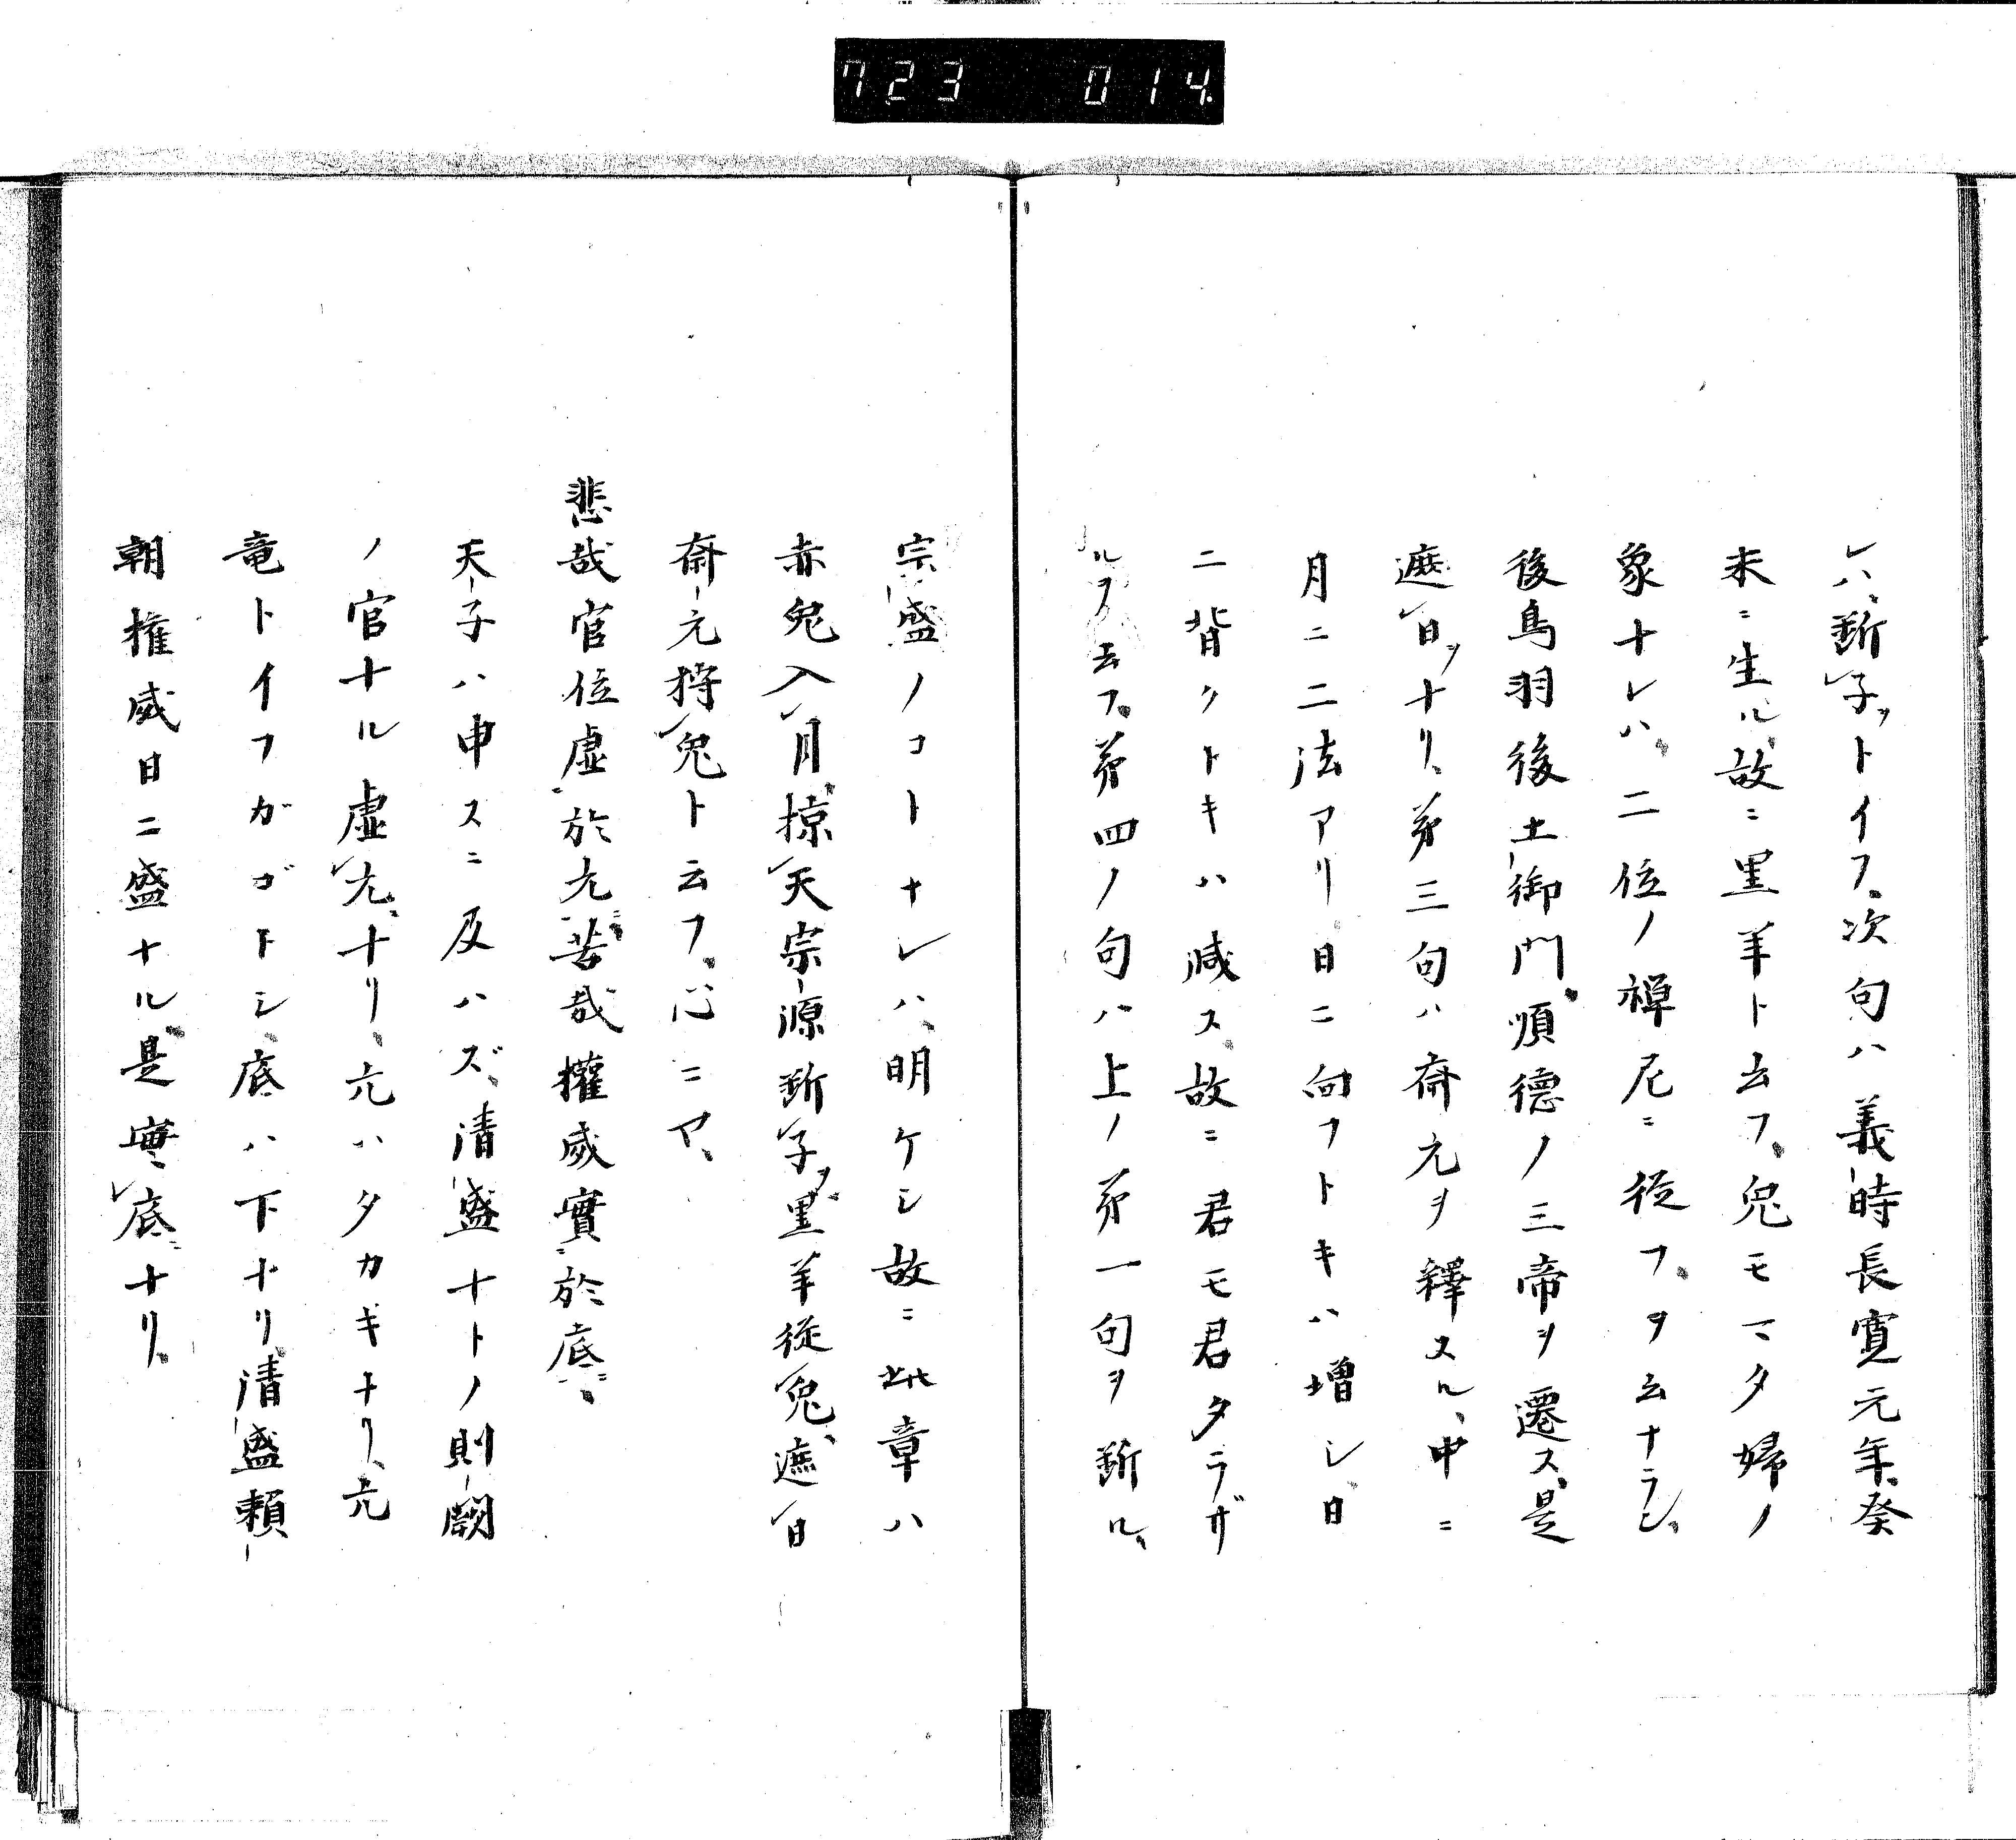 723 014
レハ、斷子ヲトイフ、次句ハ義時長寛元年、癸
未ニ生ル、故ニ黒羊ト云フ、兔モマタ婦ノ
象ナレハ、二位ノ禅尼ニ従フヲ云ナラシ、
後鳥羽後土御門、順徳ノ三帝ヲ遷ス、是
遮白ヲナリ、第三句ハ斎元ヲ釋スル、中ニ
月ニ二法アリ日ニ向フトキハ増シ、日
ニ背クトキハ減ス、故ニ君モ君タラザ
ルヲ云フ、第四ノ句ハ上ノ第一句ヲ斷ル、
宗盛ノコトナレハ、明ケシ故ニ此章ハ
赤兔入月、掠天宗源斷子ヲ、黒羊従兔、遮日
斎元狩兔ト云フ、心ニア、
悲哉官位虚於亢、苦哉權威實於底、
天子ハ申スニ及ハズ、清盛ナトノ則闕
ノ官ナル虚亢、ナリ、亢ハタカキナリ、亢
竜トイフガゴトシ、底ハ下ナリ、清盛頼
朝權威日ニ盛ナル、是實、底ナリ、